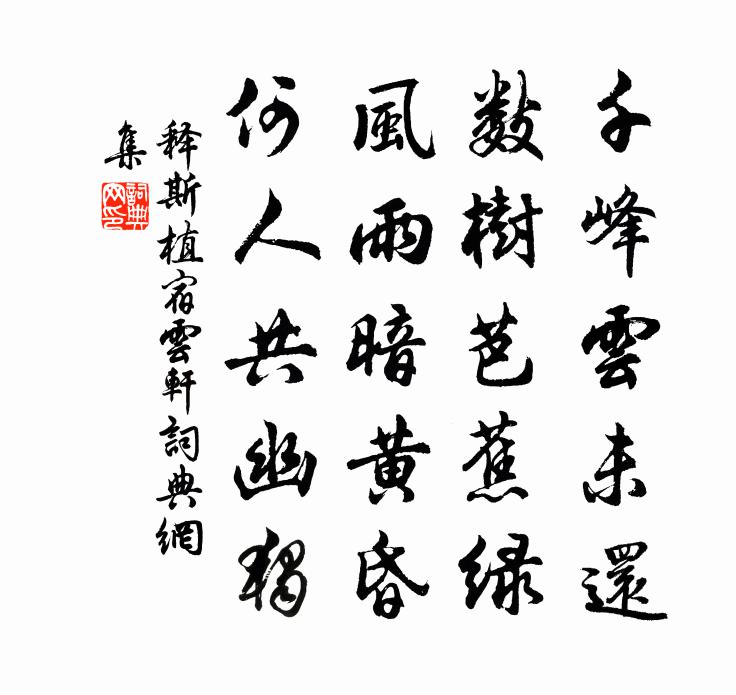 千峰雲未還
數樹芭蕉綠
風雨暗黄昏
何人共幽獨
释斯植宿雲軒詞典網
集
詞典
网印